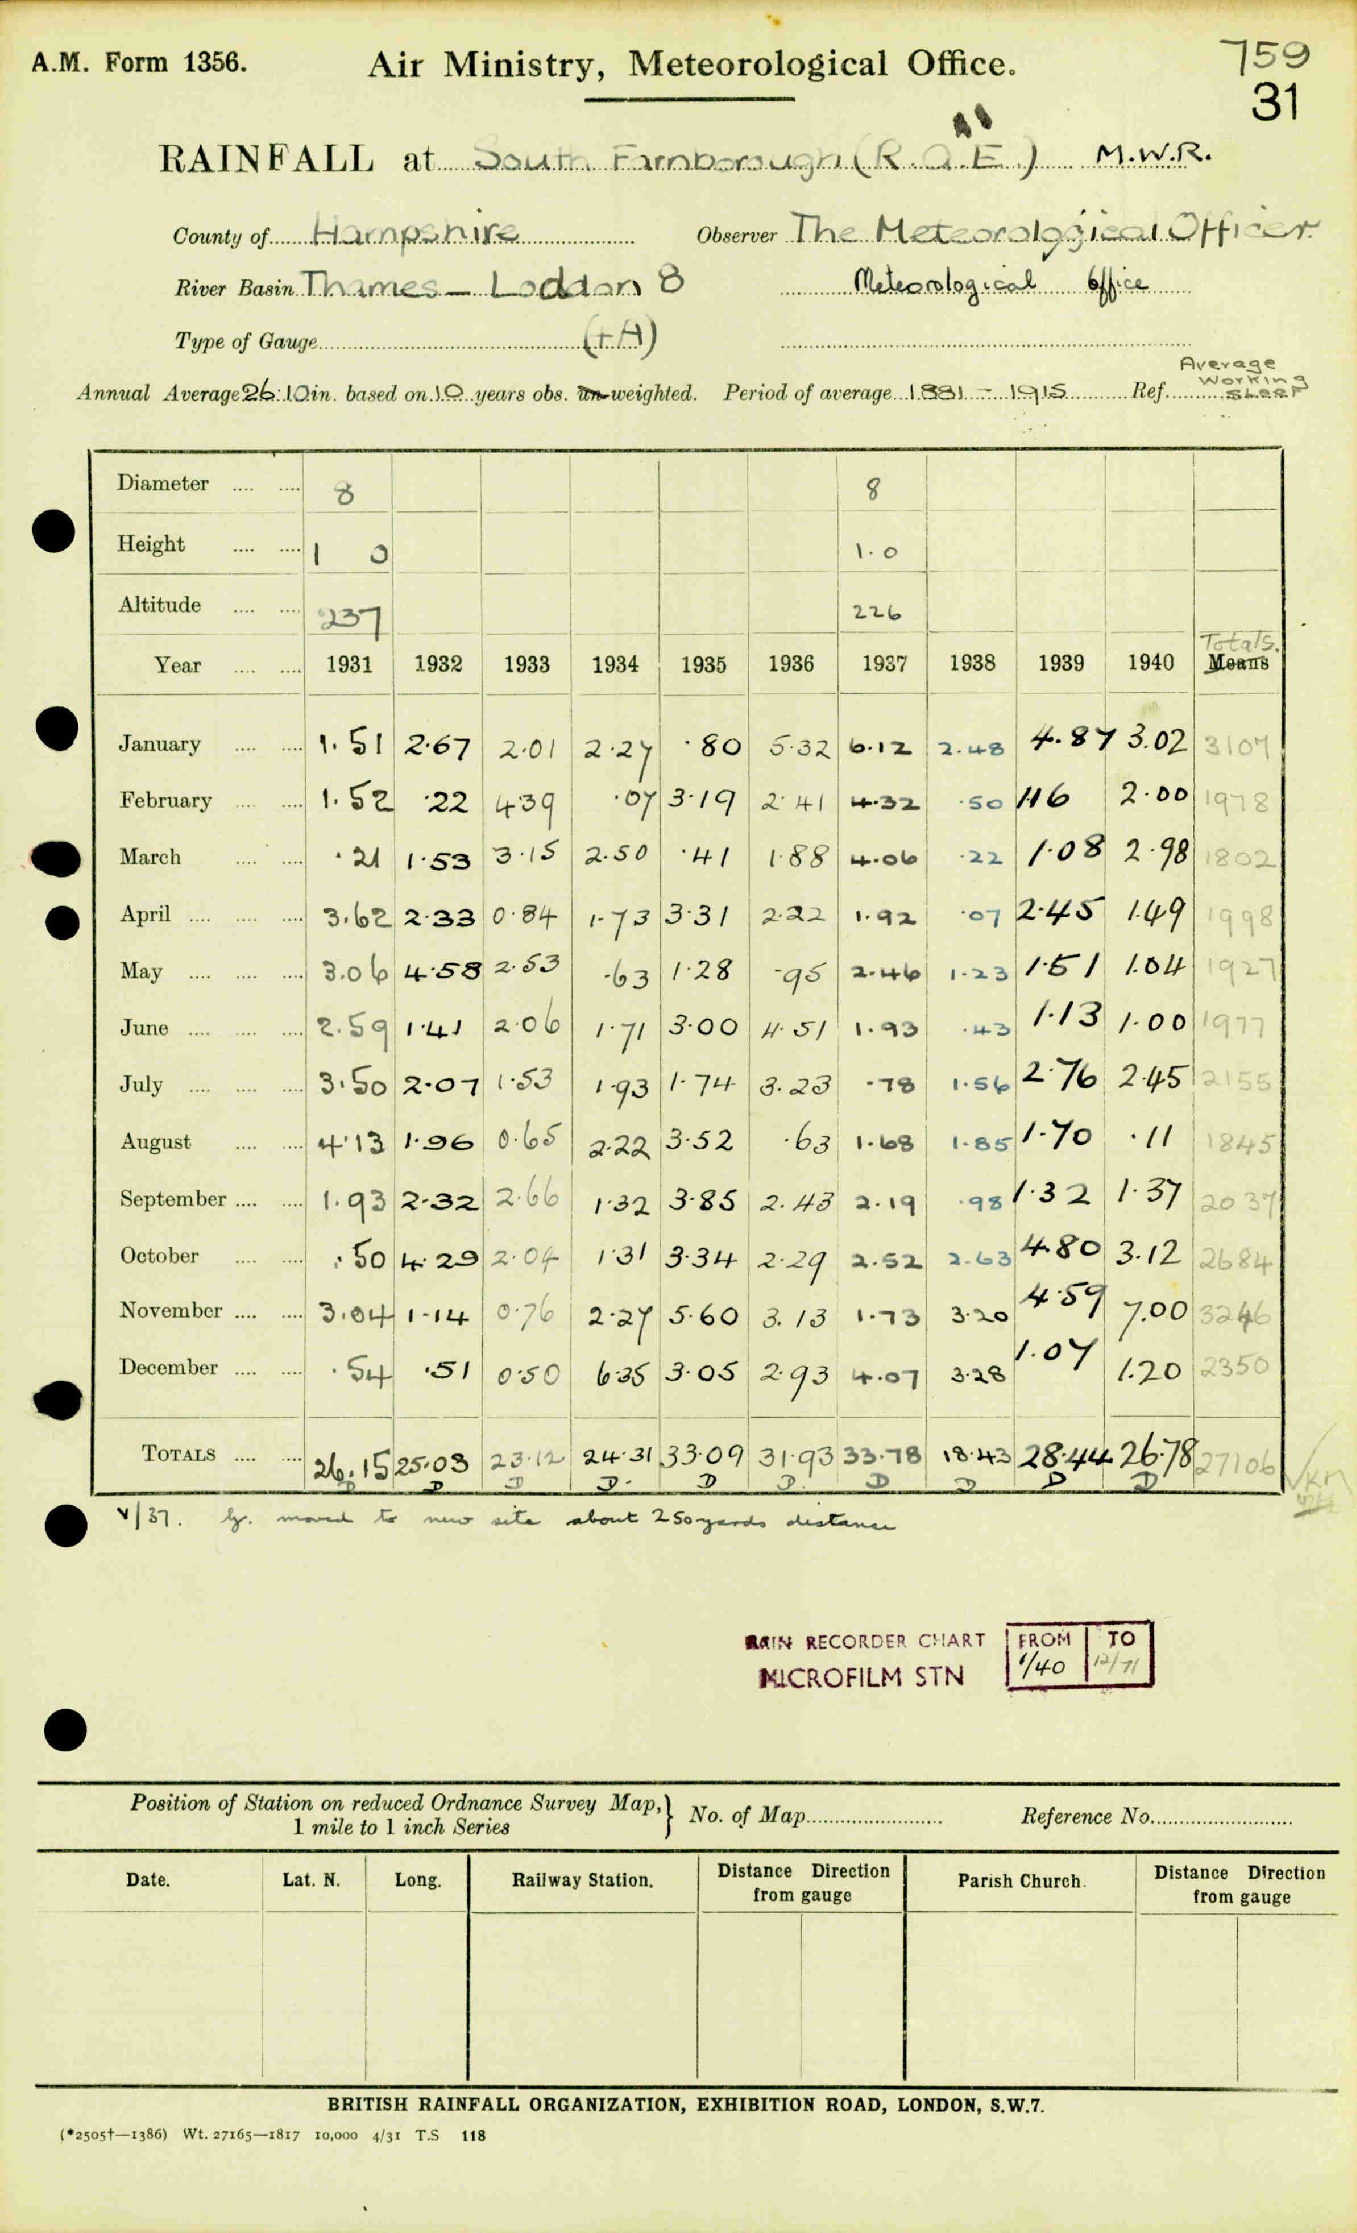 A.M. Form 1356. Air Ministry, Meteorological Office. 759
31
RAINFALL at South Farnborough (R.A.E.) M.W.R.
County of Hampshire Observer The Meteorological Officer
River Basin Thames - Loddon 8 Meteorological Office
Type of Gauge (+A)
Annual Average 26.10 in. based on 10 years obs. un-weighted. Period of average 1881 - 1915 Ref. Average Working Sheet
Diameter 8 8
Height 1 0 1.0
Altitude 237 226
Totals.
Year 1931 1932 1933 1934 1935 1936 1937 1938 1939 1940 Means
January 1.51 2.67 2.01 2.27 .80 5.32 6.12 2.48 4.87 3.02 3107
February 1.52 .22 4.39 .07 3.19 2.41 4.32 .50 1.16 2.00 1978
March .21 1.53 3.15 2.50 .41 1.88 4.06 .22 1.08 2.98 1802
April 3.62 2.33 0.84 1.73 3.31 2.22 1.92 .07 2.45 1.49 1998
May 3.06 4.58 2.53 .63 1.28 .95 2.46 1.23 1.51 1.04 1927
June 2.59 1.41 2.06 1.71 3.00 4.51 1.93 .43 1.13 1.00 1977
July 3.50 2.07 1.53 1.93 1.74 3.23 .78 1.56 2.76 2.45 2155
August 4.13 1.96 0.65 2.22 3.52 .63 1.68 1.85 1.70 .11 1845
September 1.93 2.32 2.66 1.32 3.85 2.43 2.19 .98 1.32 1.37 2037
October .50 4.29 2.04 1.31 3.34 2.29 2.52 2.63 4.80 3.12 2684
November 3.04 1.14 0.76 2.27 5.60 3.13 1.73 3.20 4.59 7.00 3246
December .54 .51 0.50 6.35 3.05 2.93 4.07 3.28 1.07 1.20 2350
TOTALS 26.15 25.03 23.12 24.31 33.09 31.93 33.78 18.43 28.44 26.78 27106
D D D D D D D D D D
V/37. G. moved to new site about 250 yards distance
RAIN RECORDER CHART FROM TO
MICROFILM STN 1/40 12/71
Position of Station on reduced Ordnance Survey Map, 1 mile to 1 inch Series No. of Map Reference No.
Date. Lat. N. Long. Railway Station. Distance Direction from gauge Parish Church. Distance Direction from gauge
BRITISH RAINFALL ORGANIZATION, EXHIBITION ROAD, LONDON, S.W.7.
(*2505†—1386) Wt. 27165—1817 10,000 4/31 T.S 118